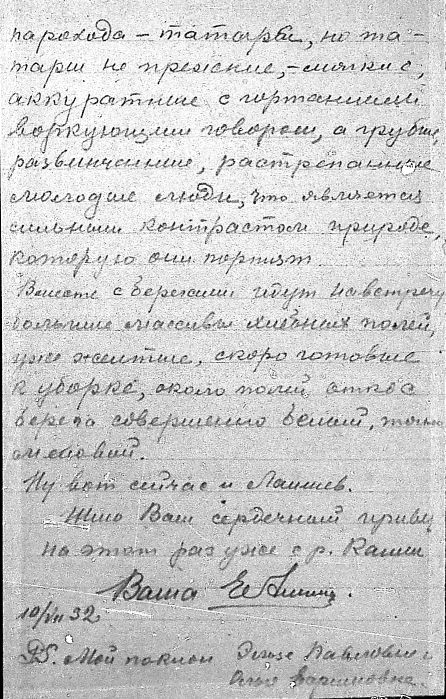 парохода – татары, но та-
тары не прежние, – мягкие,
аккуратные с гортанным
воркующим говором, а грубые,
развинчанные, растрепанные
молодые люди, что является
сильным контрастом природе,
которую они портят.
Вместе с берегами идут навстречу
большие массивы хлебных полей,
уже желтые, скоро готовые
к уборке, около полей откос
берега совершенно белый, точно
меловой.
Ну вот сейчас и Лаишев.
Шлю Вам сердечный привет
на этот раз уже с р. Камы
Ваша
10/VII 32
PS. Мой поклон Павловне и